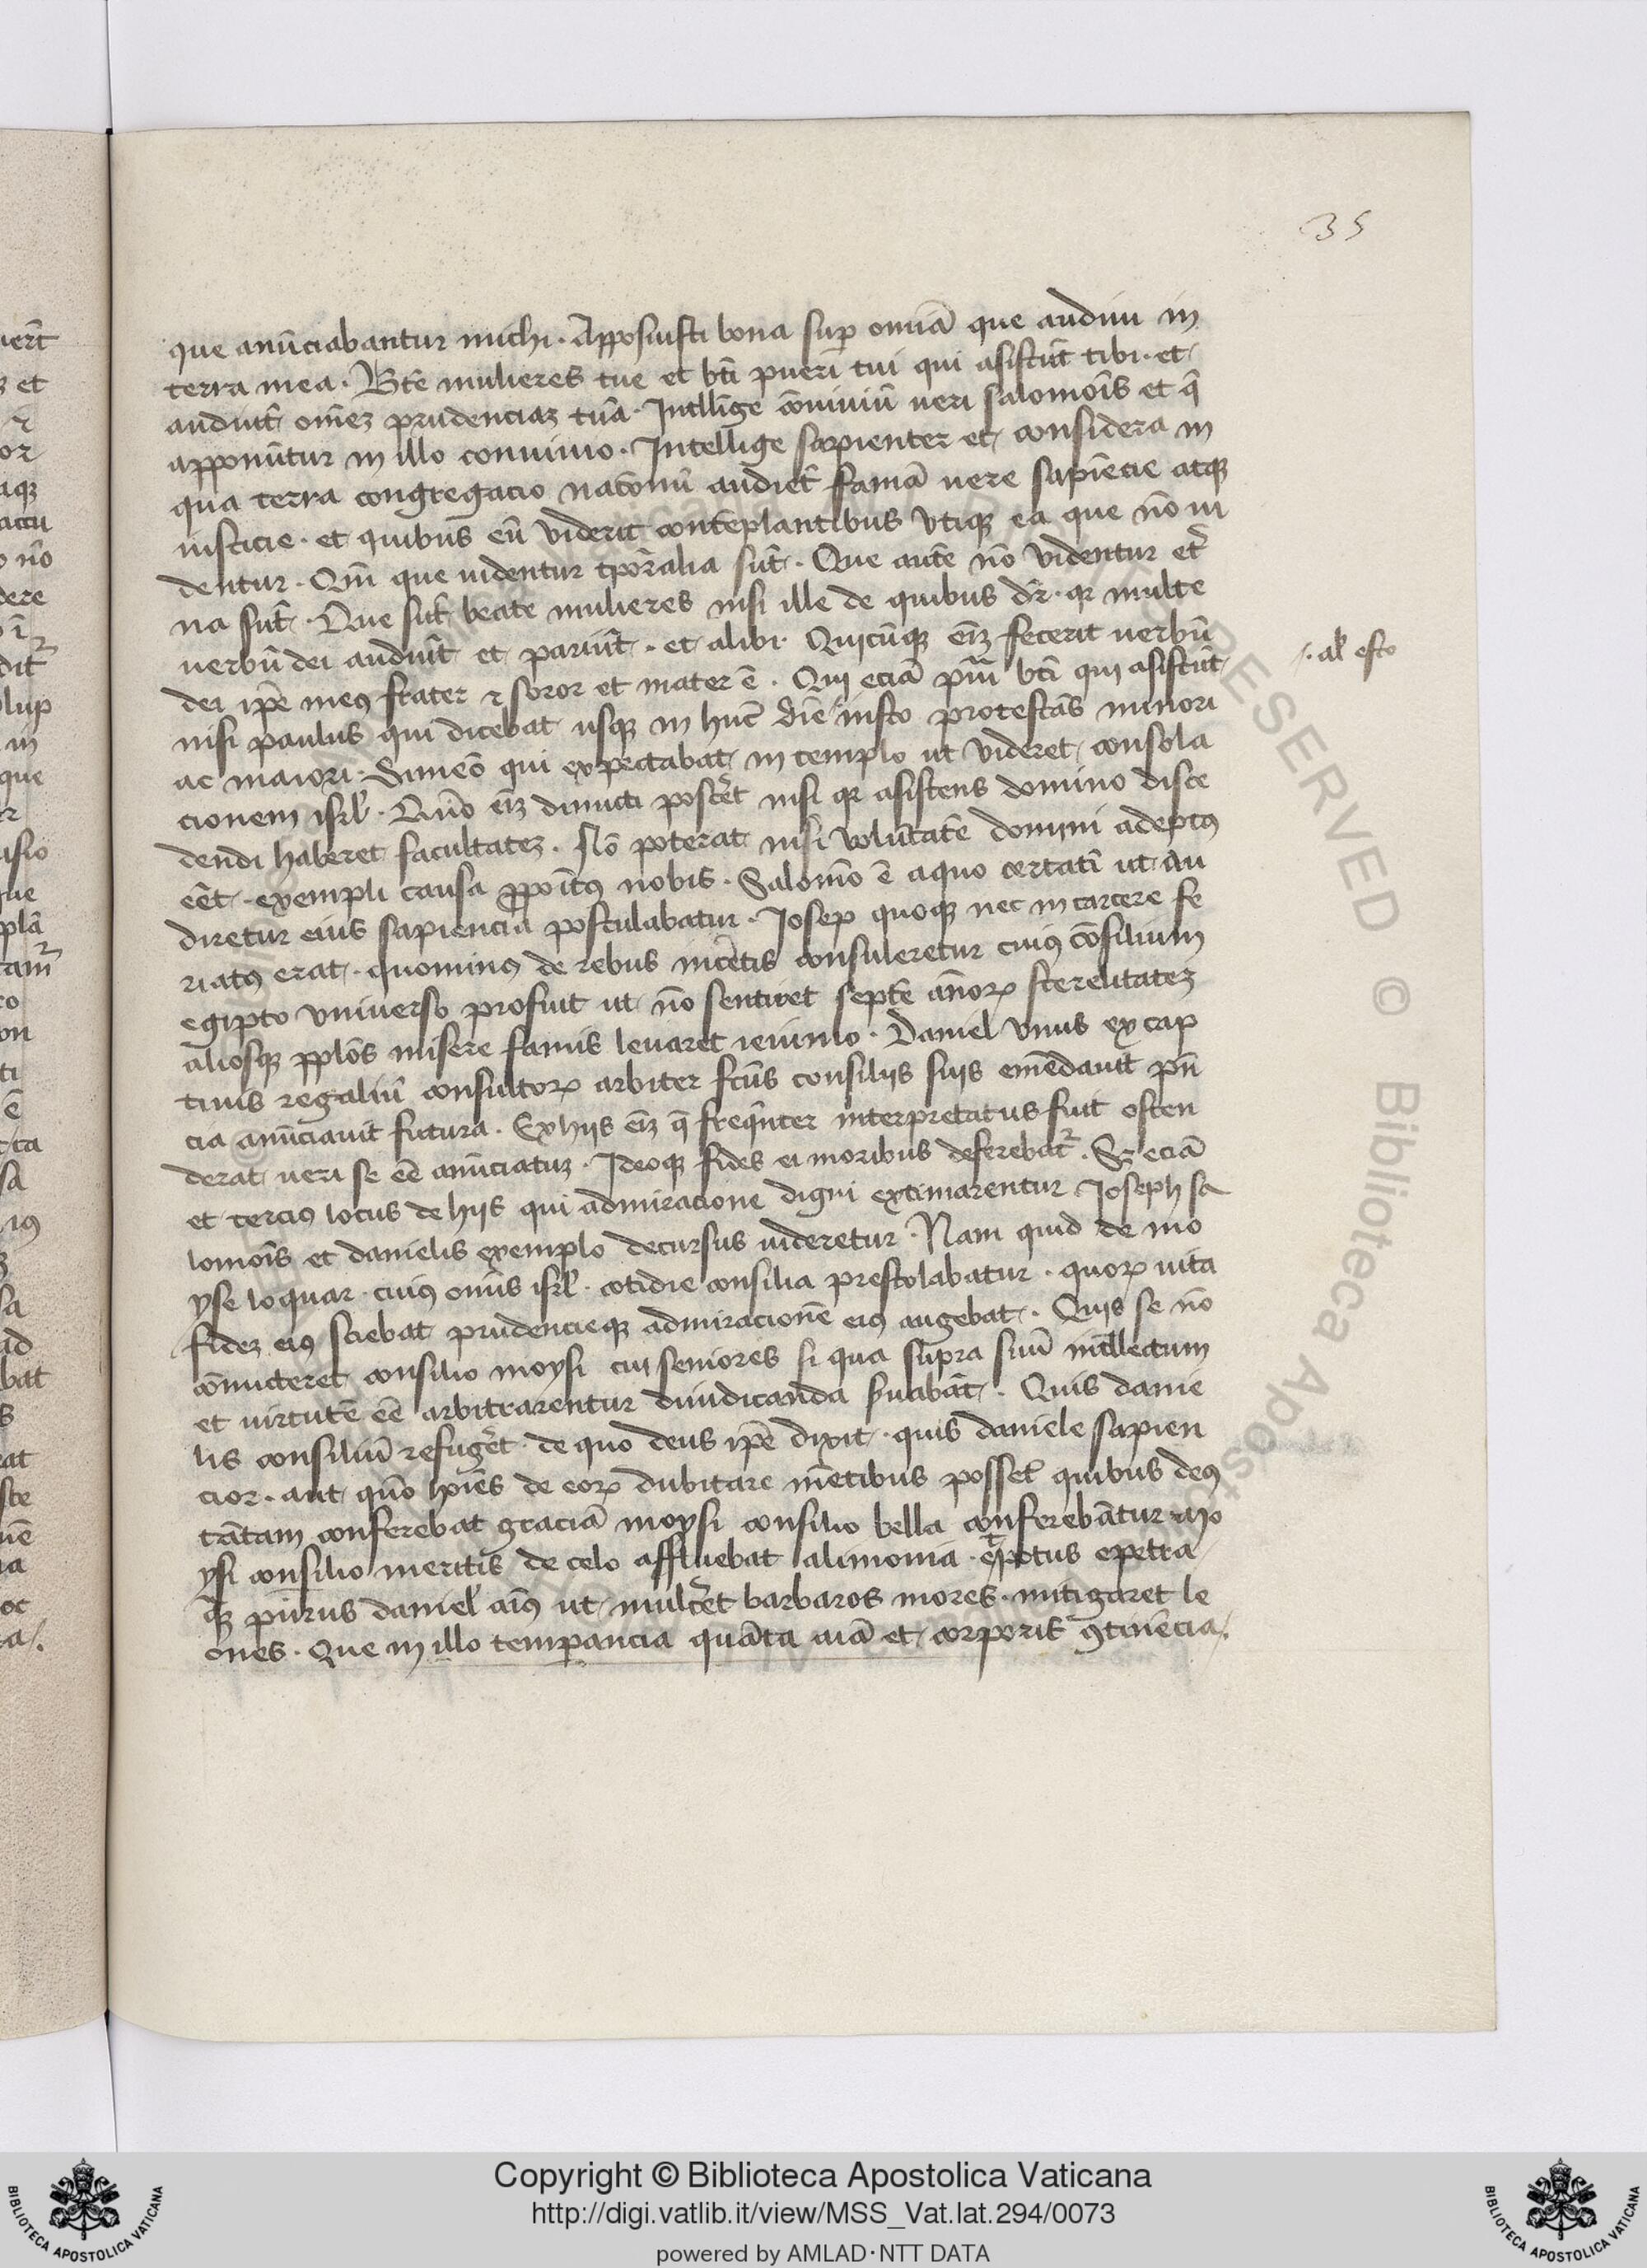 35
que anūciabantur michi. Apposuisti bona sup̄ omīā que audiui in
terra mea. Bt̄e mulieres tue et bt̄i pueri tui qui asistūt tibi. et
audiūt om̄eʒ prudenciaʒ tuā. Intll̄ige cōuiuiū ueri salomōis et q̄
apponūtur in illo conuiuio. Intellige sapienter et considera in
qua terra congregacio natōnū audiēt famā uere sapiēcie atqʒ
iusticie. et quibus eū viderit contēplantibus vtiqʒ ea que nō ui
dentur. Qm̄ que uidentur tpōralia sūt. Que autē nō videntur et̄
na sūt. Que sūt beate mulieres nisi ille de quibus dr̄. qꝛ multe
uerbū dei audiūt et pariūt. et alibi. Quicūqʒ eīʒ fecerit uerbū
dei ip̄e meꝰ frater ⁊ soror et mater ē. Qui eciā pūi bt̄i qui asistūt
nisi paulus qui dicebat usqʒ in hūc diē iusto protestās minori
./. al' esto
ac maiori. Simeō qui expectabat in templo ut videret consola
cionem isrl'. Quō eīʒ dimicti poscēt nisi qꝛ asistens domino disce
dendi haberet facultateʒ. Nō poterat nisi volūtatē domini adeptꝰ
eēt. exempli causa p̄poitꝰ nobis. Salomō ē aquo certatī ut au
diretur eius sapiencia postulabatur. Iosep quoqʒ nec in carcere fe
riatꝰ erat. quominꝰ de rebus incētis consuleretur cuiꝰ cōsilium
egipto vniuerso profuit ut nō sentiret septē ānoꝝ sterelitateʒ
aliosqʒ ppl̄os misere famis leuaret ieiunio. Daniel vnus ex cap
tiuis regaliū consultoꝝ arbiter fcūs consiliis suis emēdauit pn̄
cia anūciauit futura. Ex hiis eīʒ q̄ freqn̄ter interpretatus fuit osten
derat ueri se eē anūciatuʒ. Ideoqʒ fides ei moribus deferebat᷑. Sʒ eciā
et terciꝰ locus de hiis qui admiracione digni extimarentur Ioseph sa
lomōis et danielis exemplo decursus uideretur. Nam quid de mo
yse loquar. cuiꝰ omīs isrl'. cotidie consilia prestolabatur. quoꝝ uita
fideʒ eiꝰ sciebat prudencieqʒ admiracionē eiꝰ augebat. Quis se nō
cōmicteret consilio moysi cui seniores si qua supra suū intll̄ectum
et uirtutē eē arbitrarentur diiudicanda s̄uabāt. Quis danie
lis consiliū refuḡet. de quo deus ip̄e dixit. quis daniele sapien
cior. aut quō hoīes de eoꝝ dubitare mētibus posset quibus deꝰ
tātam conferebat graciā moysi consilio bella conferebātur. mo
ysi consilio meritis de celo affluebat alimonia. ⁊ potus epetra
q̄ʒ purus daniel' aīꝰ ut mulc̄et barbaros mores. mitigaret le
ones. Que in illo temperancia quāta aiā et corporis ꝯtinēcia.
Copyright © Biblioteca Apostolica Vaticana
http://digi.vatlib.it/view/MSS_Vat.lat.294/0073
powered by AMLAD·NTT DATA